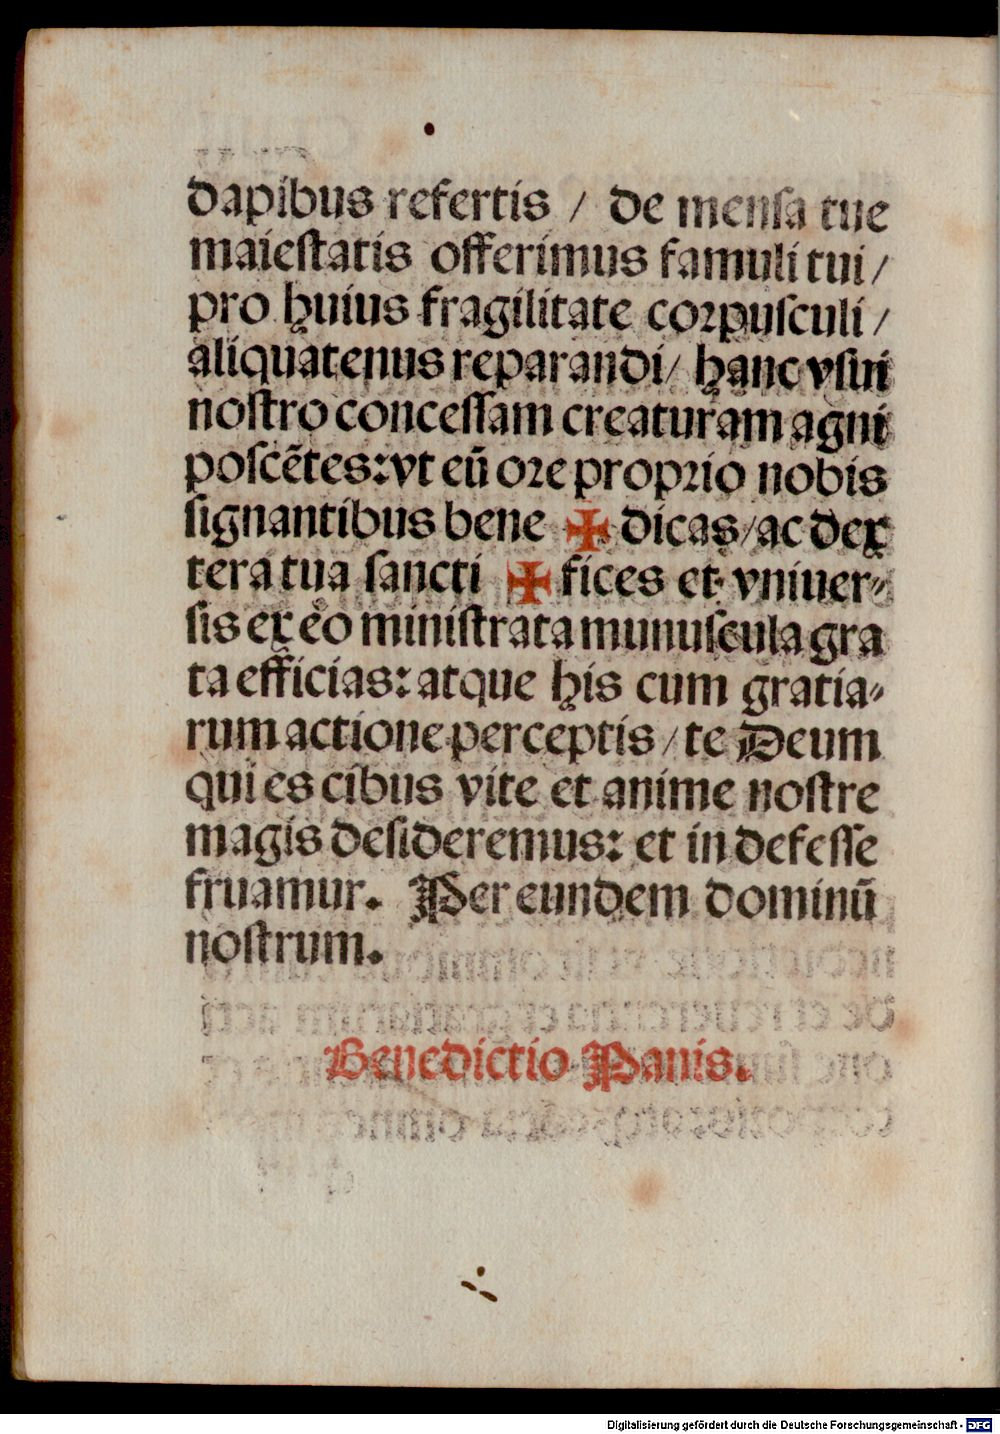 dapibus refertis / de mensa tue
maiestatis offerimus famuli tui /
pro huius fragilitate corpusculi /
aliquatenus reparandi / hanc vsui
nostro concessam creaturam agni
poscētes: vt eū ore proprio nobis
signantibus bene ✠ dicas / ac dex
tera tua sancti ✠ fices et vniuer⸗
sis ex eo ministrata munuscula gra
ta efficias: atque his cum gratia⸗
rum actione perceptis / te Deum
qui es cibus vite et anime nostre
magis desideremus: et in defesse
fruamur. Per eundem dominū
nostrum.
Benedictio Panis.
Digitalisierung gefördert durch die Deutsche Forschungsgemeinschaft - DFG